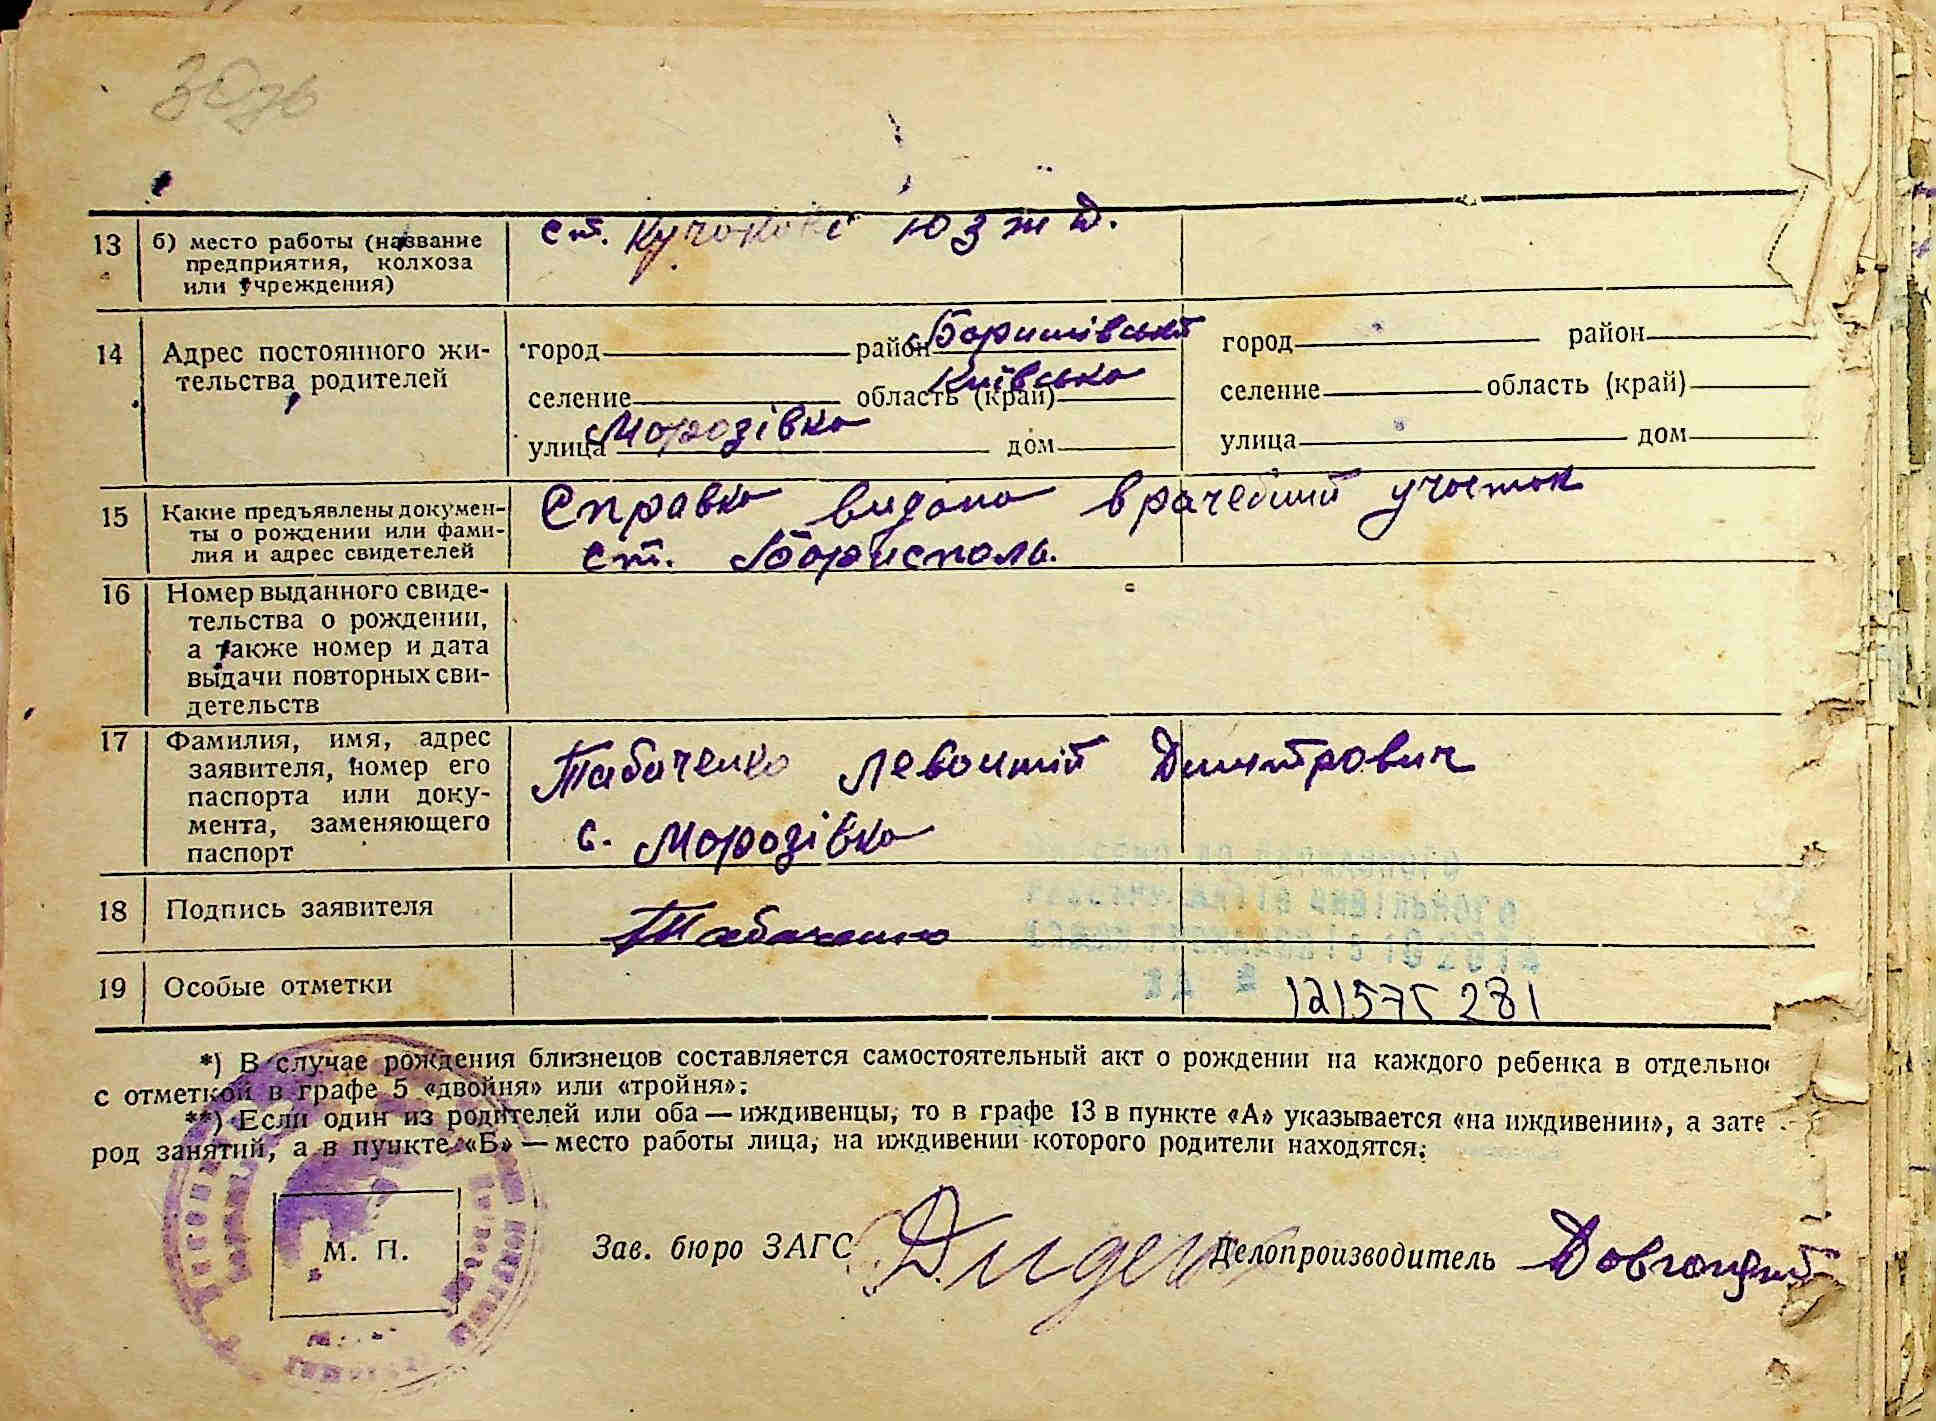 13
б) место работы (название
предприятия, колхоза
или учреждения)
ст. Кучакове ЮЗ ж Д.
14
Адрес постоянного жи-
тельства родителей
город район Баришівський
селение область (край) Київська
улица Морозівка дом
город район
селение область (край)
улица дом
15
Какие предъявлены докумен-
ты о рождении или фами-
лия и адрес свидетелей
Справка видана врачебний участок
ст. Бориспола.
16
Номер выданного свиде-
тельства о рождении,
а также номер и дата
выдачи повторных сви-
детельств
17
Фамилия, имя, адрес
заявителя, номер его
паспорта или доку-
мента, заменяющего
паспорт
Табаченко Левонтій Димитрович
с. Морозівка
18
Подпись заявителя
Табаченко
19
Особые отметки
121575 281
*) В случае рождения близнецов составляется самостоятельный акт о рождении на каждого ребенка в отдельно
с отметкой в графе 5 «двойня» или «тройня»;
**) Если один из родителей или оба — иждивенцы, то в графе 13 в пункте «А» указывается «на иждивении», а зате
род занятий, а в пункте «Б» — место работы лица, на иждивении которого родители находятся;
М. П.
Зав. бюро ЗАГС Делопроизводитель